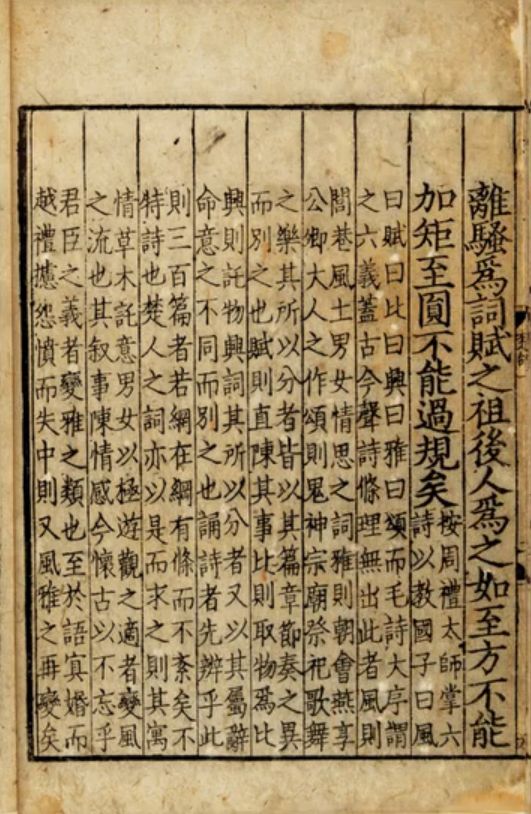 離騷爲詞賦之祖後人爲之如至方不能
加矩至圓不能過規矣
按周禮太師掌六
詩以教國子曰風
曰賦曰比曰興曰雅曰頌而毛詩大序謂
之六義蓋古今聲詩條理無出此者風則
閭巷風土男女情思之詞雅則朝會燕享
公卿大人之作頌則鬼神宗廟祭祀歌舞
之樂其所以分者皆以其篇章節奏之異
而別之也賦則直陳其事比則取物爲比
興則託物興詞其所以分者又以其屬辭
命意之不同而別之也誦詩者先辨乎此
則三百篇者若網在綱有條而不紊矣不
特詩也楚人之詞亦以是而求之則其寓
情草木託意男女以極遊觀之適者變風
之流也其叙事陳情感今懷古以不忘乎
君臣之義者變雅之類也至於語冥婚而
越禮攄怨憤而失中則又風雅之再變矣